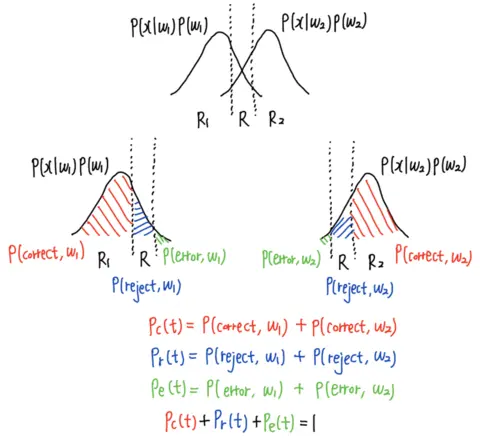 P(x|w₁)P(w₁) P(x|w₂)P(w₂)
R₁ R R₂
P(x|w₁)P(w₁) P(x|w₂)P(w₂)
P(correct, w₁) R₁ R P(error, w₁) P(error, w₂) R R₂ P(correct, w₂)
P(reject, w₁) P(reject, w₂)
Pc(t) = P(correct, w₁) + P(correct, w₂)
Pr(t) = P(reject, w₁) + P(reject, w₂)
Pe(t) = P(error, w₁) + P(error, w₂)
Pc(t) + Pr(t) + Pe(t) = 1